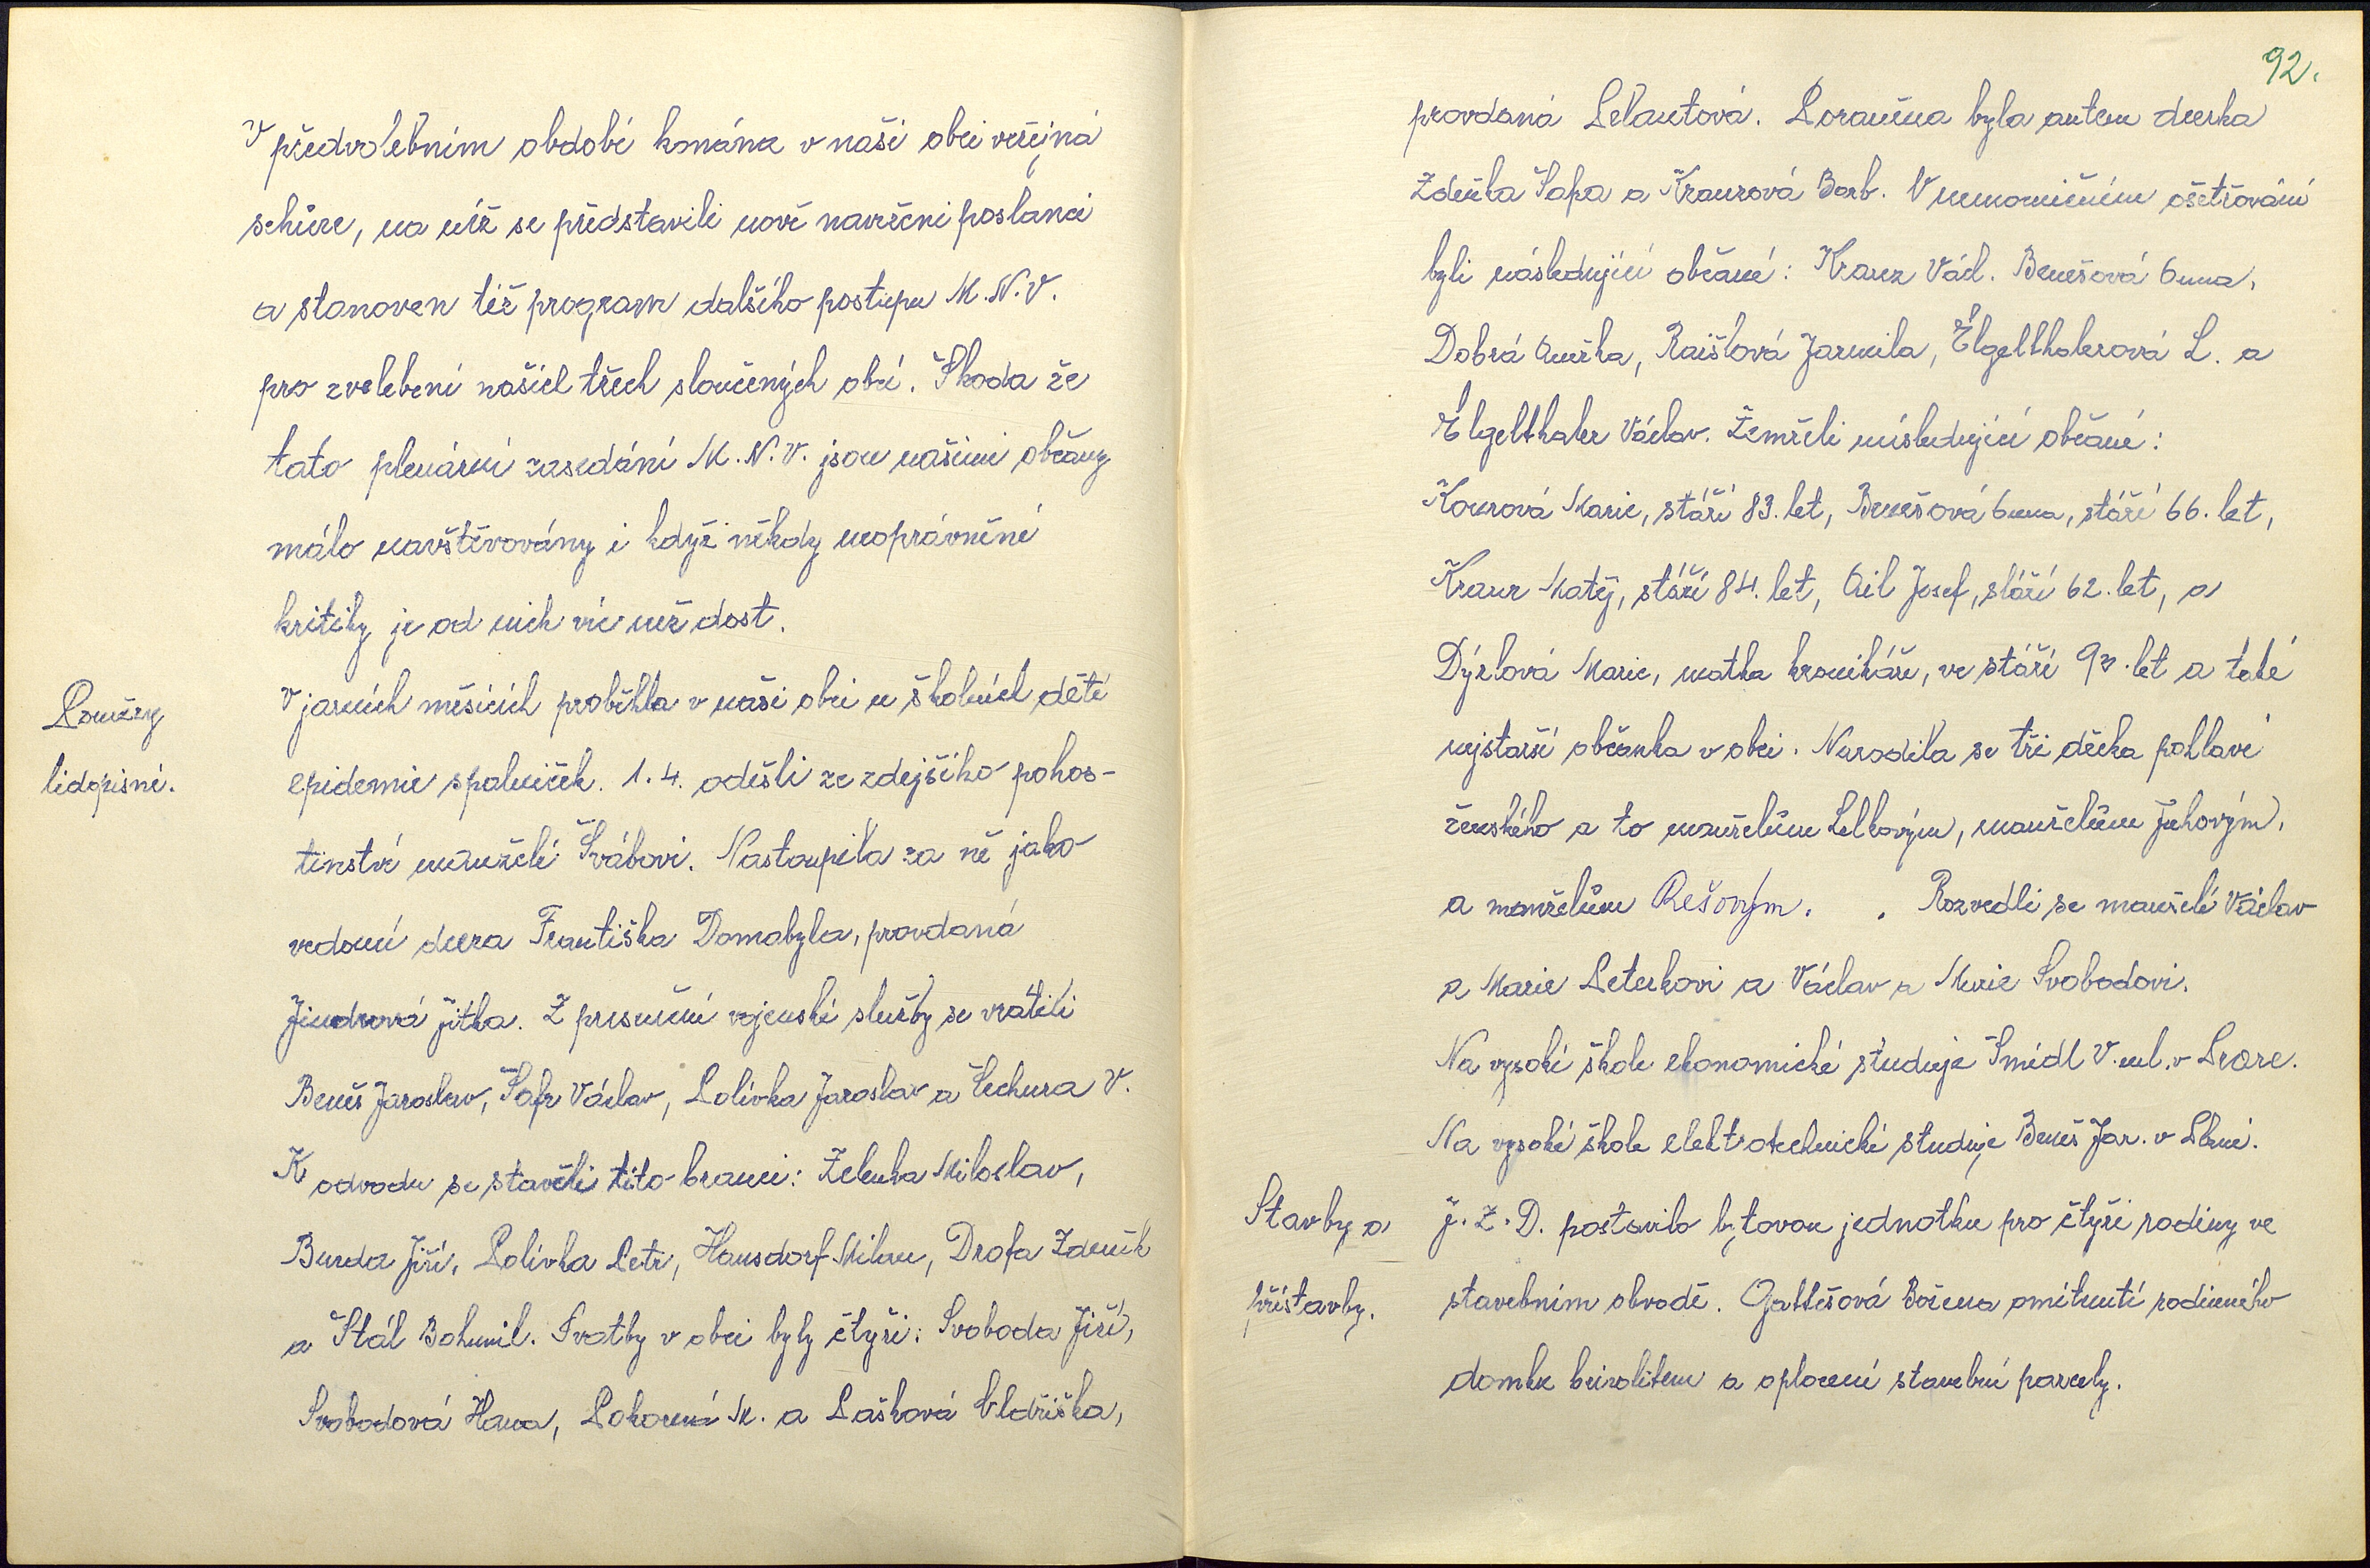 V předvolebním období konána v naší obci veřejná
schůze, na níž se představili nově navržení poslanci
a stanoven též program dalšího postupu M.N.V.
pro zvelebení našich třech sloučených obcí. Škoda že
tato plenární zasedání M.N.V. jsou našimi občany
málo navštěvovány i když někdy neoprávněné
kritiky je od nich víc než dost.
Poměry
lidopisné.
V jarních měsících proběhla v naší obci u školních dětí
epidemie spalniček. 1.4. odešli ze zdejšího pohos-
tinství manželé Švábovi. Nastoupila za ně jako
vedoucí dcera Františka Domabyla, provdaná
Jindrová Jitka. Z presenční vojenské služby se vrátili
Beneš Jaroslav, Šafr Václav, Polívka Jaroslav a Sechura V.
K odvodu se stavěli tito branci: Zelenka Miloslav,
Burda Jiří, Polívka Petr, Hausdorf Milan, Drofa Zdeněk
a Štál Bohumil. Svatby v obci byly čtyři: Svoboda Jiří,
Svobodová Hana, Pokorná M. a Pašková Oldřiška,
92.
provdaná Pelantová. Poraněna byla autem dcerka
Zdeňka Šafra a Krausová Barb. V nemocničním ošetřování
byli následující občané: Kraus Václ. Benešová Anna,
Dobrá Anežka, Raišlová Jarmila, Elgelthalerová L. a
Elgelthaler Václav. Zemřeli následující občané:
Kourová Marie, stáří 83. let, Benešová Anna, stáří 66. let,
Kraur Matěj, stáří 84. let, Ail Josef, stáří 62. let, a
Dýrlová Marie, matka kronikáře, ve stáří let a také
nejstarší občanka v obci. Narodila se tři děcka pohlaví
ženského a to manželům Lelkovým, manželům Juhovým,
a manželům Rešovým. . Rozvedli se manželé Václav
a Marie Peterkovi a Václav a Marie Svobodovi.
Na vysoké škole ekonomické studuje Šmídl V. ml. v Praze.
Na vysoké škole elektrotechnické studuje Beneš Jar. v Plzni.
Stavby a
přístavby.
J.Z.D. postavilo bytovou jednotku pro čtyři rodiny ve
stavebním obvodě. Gattešová Božena omítnutí rodinného
domku brizolitem a oplocení stavební parcely.